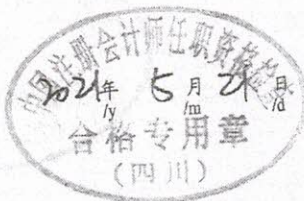 中国注册会计师任职资格检
2021年 5月 21日
/y /m /d
合格专用章
(四川)